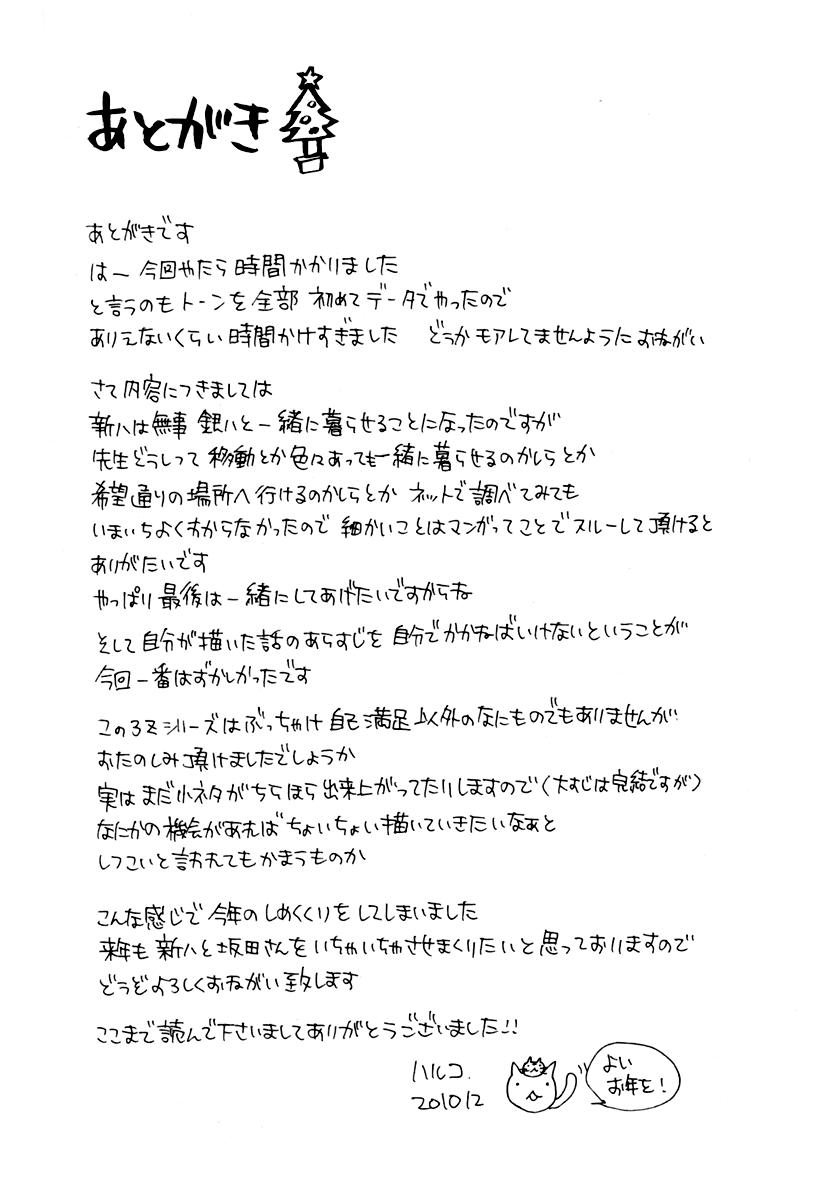 あとがき
あとがきです
はー 今回やたら時間かかりました
と言うのもトーンを全部 初めてデータでやったので
ありえないくらい時間かけすぎました どうかモアレてませんように おねがい
さて内容につきましては
新八は無事 銀八と一緒に暮らせることになったのですが
先生どうしって 移動とか色々あっても一緒に暮らせるのかしらとか
希望通りの場所へ行けるのかしらとか ネットで調べてみても
いまいちよくわからなかったので 細かいことはマンガってことでスルーして頂けると
ありがたいです
やっぱり最後は一緒にしてあげたいですからね
そして自分が描いた話のあらすじを 自分でかかねばいけないということが
今回一番はずかしかったです
この3Zシリーズはぶっちゃけ 自己満足以外のなにものでもありませんが
おたのしみ頂けましたでしょうか
実はまだ小ネタがちらほら出来上がってたりしますので(大すじは完結ですが)
なにかの機会があればちょいちょい描いていきたいなぁと
しつこいと言われてもかまうものか
こんな感じで今年のしめくくりをしてしまいました
来年も新八と坂田さんをいちゃいちゃさせまくりたいと思っておりますので
どうぞよろしくおねがい致します
ここまで読んで下さいましてありがとうございました!!
ハルコ.
201012
よい
お年を!